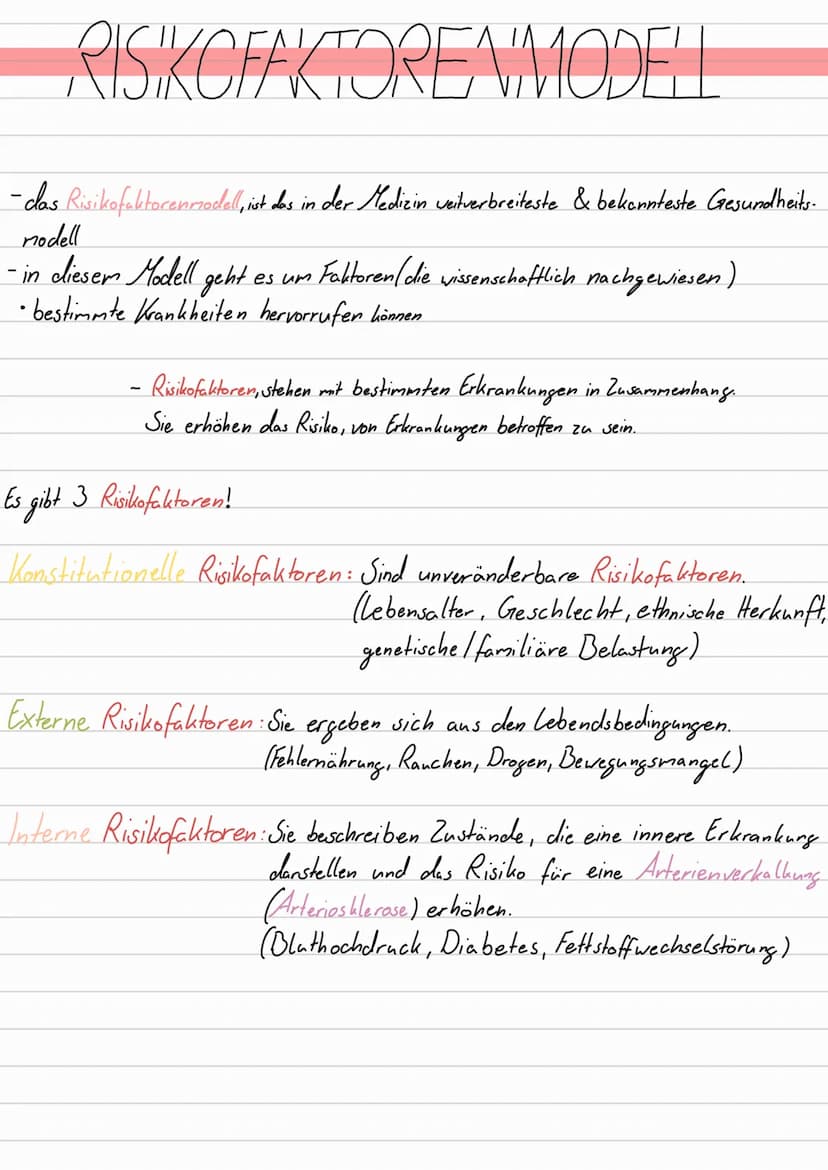 RISIKOFAKTORENMODELL
- das Risikofaktorenmodell, ist das in der Medizin weitverbreiteste & bekannteste Gesundheits-
modell
- in diesem Modell geht es um Faktoren (die wissenschaftlich nachgewiesen)
• bestimmte Krankheiten hervorrufen können
- Risikofaktoren, stehen mit bestimmten Erkrankungen in Zusammenhang.
Sie erhöhen das Risiko, von Erkrankungen betroffen zu sein.
Es gibt 3 Risikofaktoren!
Konstitutionelle Risikofaktoren: Sind unveränderbare Risikofaktoren.
(Lebensalter, Geschlecht, ethnische Herkunft,
genetische/familiäre Belastung)
Externe Risikofaktoren: Sie ergeben sich aus den Lebendsbedingungen.
(Fehlernährung, Rauchen, Drogen, Bewegungsmangel)
Interne Risikofaktoren: Sie beschreiben Zustände, die eine innere Erkrankung
darstellen und das Risiko für eine Arterienverkalkung
(Arteriosklerose) erhöhen.
(Bluthochdruck, Diabetes, Fettstoffwechselstörung)